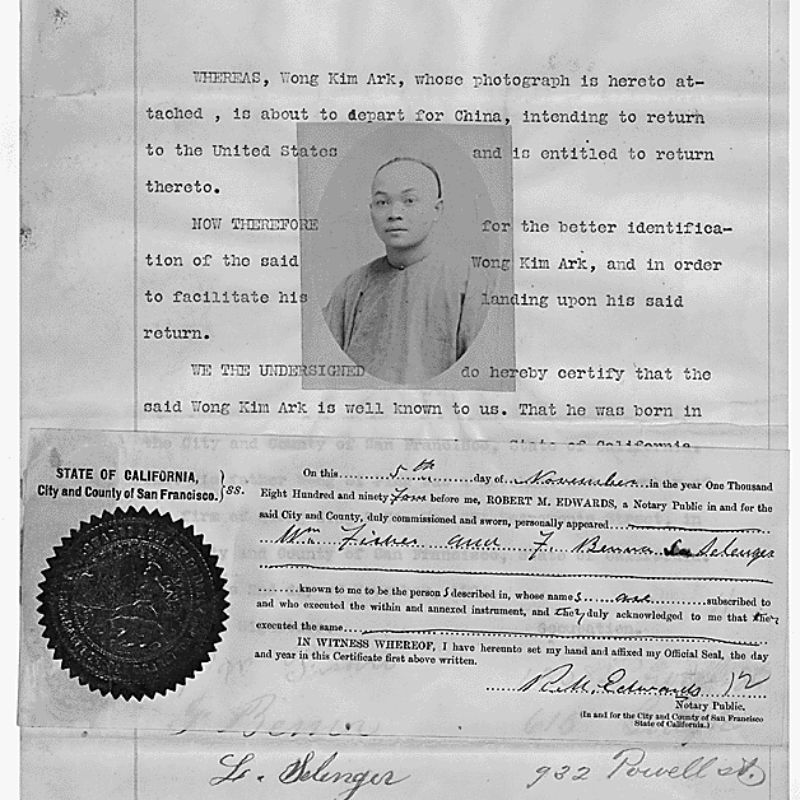 WHEREAS, Wong Kim Ark, whose photograph is hereto at-
tached , is about to depart for China, intending to return
to the United States and is entitled to return
thereto.
NOW THEREFORE for the better identifica-
tion of the said Wong Kim Ark, and in order
to facilitate his landing upon his said
return.
WE THE UNDERSIGNED do hereby certify that the
said Wong Kim Ark is well known to us. That he was born in
the City and County of San Francisco, State of California,
STATE OF CALIFORNIA,
City and County of San Francisco. } ss.
On this 5th day of November in the year One Thousand
Eight Hundred and ninety four before me, ROBERT M. EDWARDS, a Notary Public in and for the
said City and County, duly commissioned and sworn, personally appeared
Wm Fisher and F. Benna L. Selenger
known to me to be the person s described in, whose name s are subscribed to
and who executed the within and annexed instrument, and they duly acknowledged to me that they
executed the same
IN WITNESS WHEREOF, I have hereunto set my hand and affixed my Official Seal, the day
and year in this Certificate first above written.
R.M. Edwards
Notary Public.
(In and for the City and County of San Francisco
State of California.)
L. Selenger 932 Powell st.